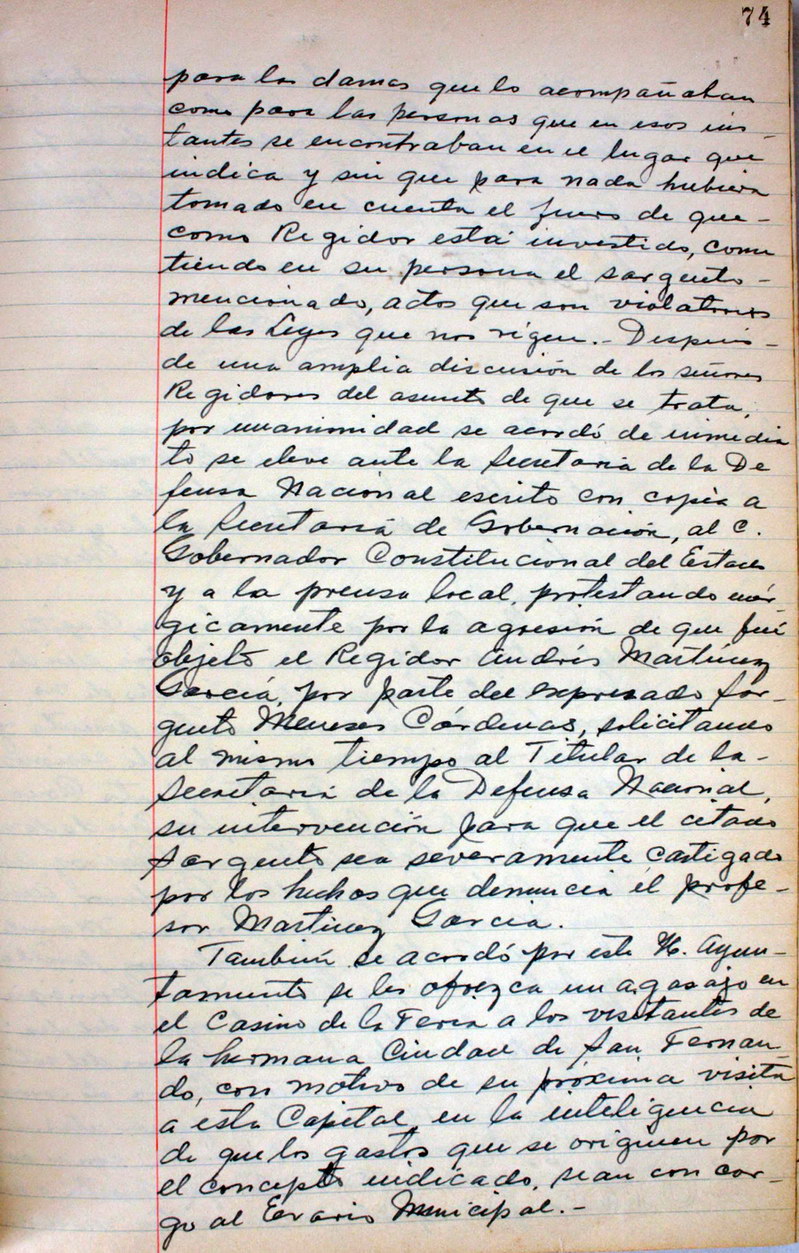 74
para las damas que lo acompañaban
como para las personas que en esos ins-
tantes se encontraban en el lugar que
indica y sin que para nada hubiera
tomado en cuenta el fuero de que-
como Regidor está investido, come
tiendo en su persona el sargento-
mencionado, actos que son violatorios
de las Leyes que nos rigen.- Después-
de una amplia discusión de los señores
Regidores del asunto de que se trata,
por unanimidad se acordó de inmedia
to se eleve ante la Secretaria de la De
fensa Nacional escrito con copia a
la Secretaría de Gobernación, al C.
Gobernador Constitucional del Estado
y a la prensa local, protestando enér-
gicamente por la agresión de que fué
objeto el Regidor Andrés Martínez
García, por parte del expresado Sar-
gento Meneses Cárdenas, solicitando
al mismo tiempo al Titular de la-
Secretaria de la Defensa Nacional,
su intervención para que el citado
Sargento sea severamente castigado
por los hechos que denuncia el profe-
sor Martinez Garcia.
También se acordó por este H. Ayun-
tamiento se les ofrezca un agasajo en
el Casino de la Feria a los visitantes de
la hermana Ciudad de San Fernan-
do, con motivo de su próxima visita
a esta Capital, en la inteligencia
de que los gastos que se originen por
el concepto indicado, sean con car-
go al Erario Municipal.-